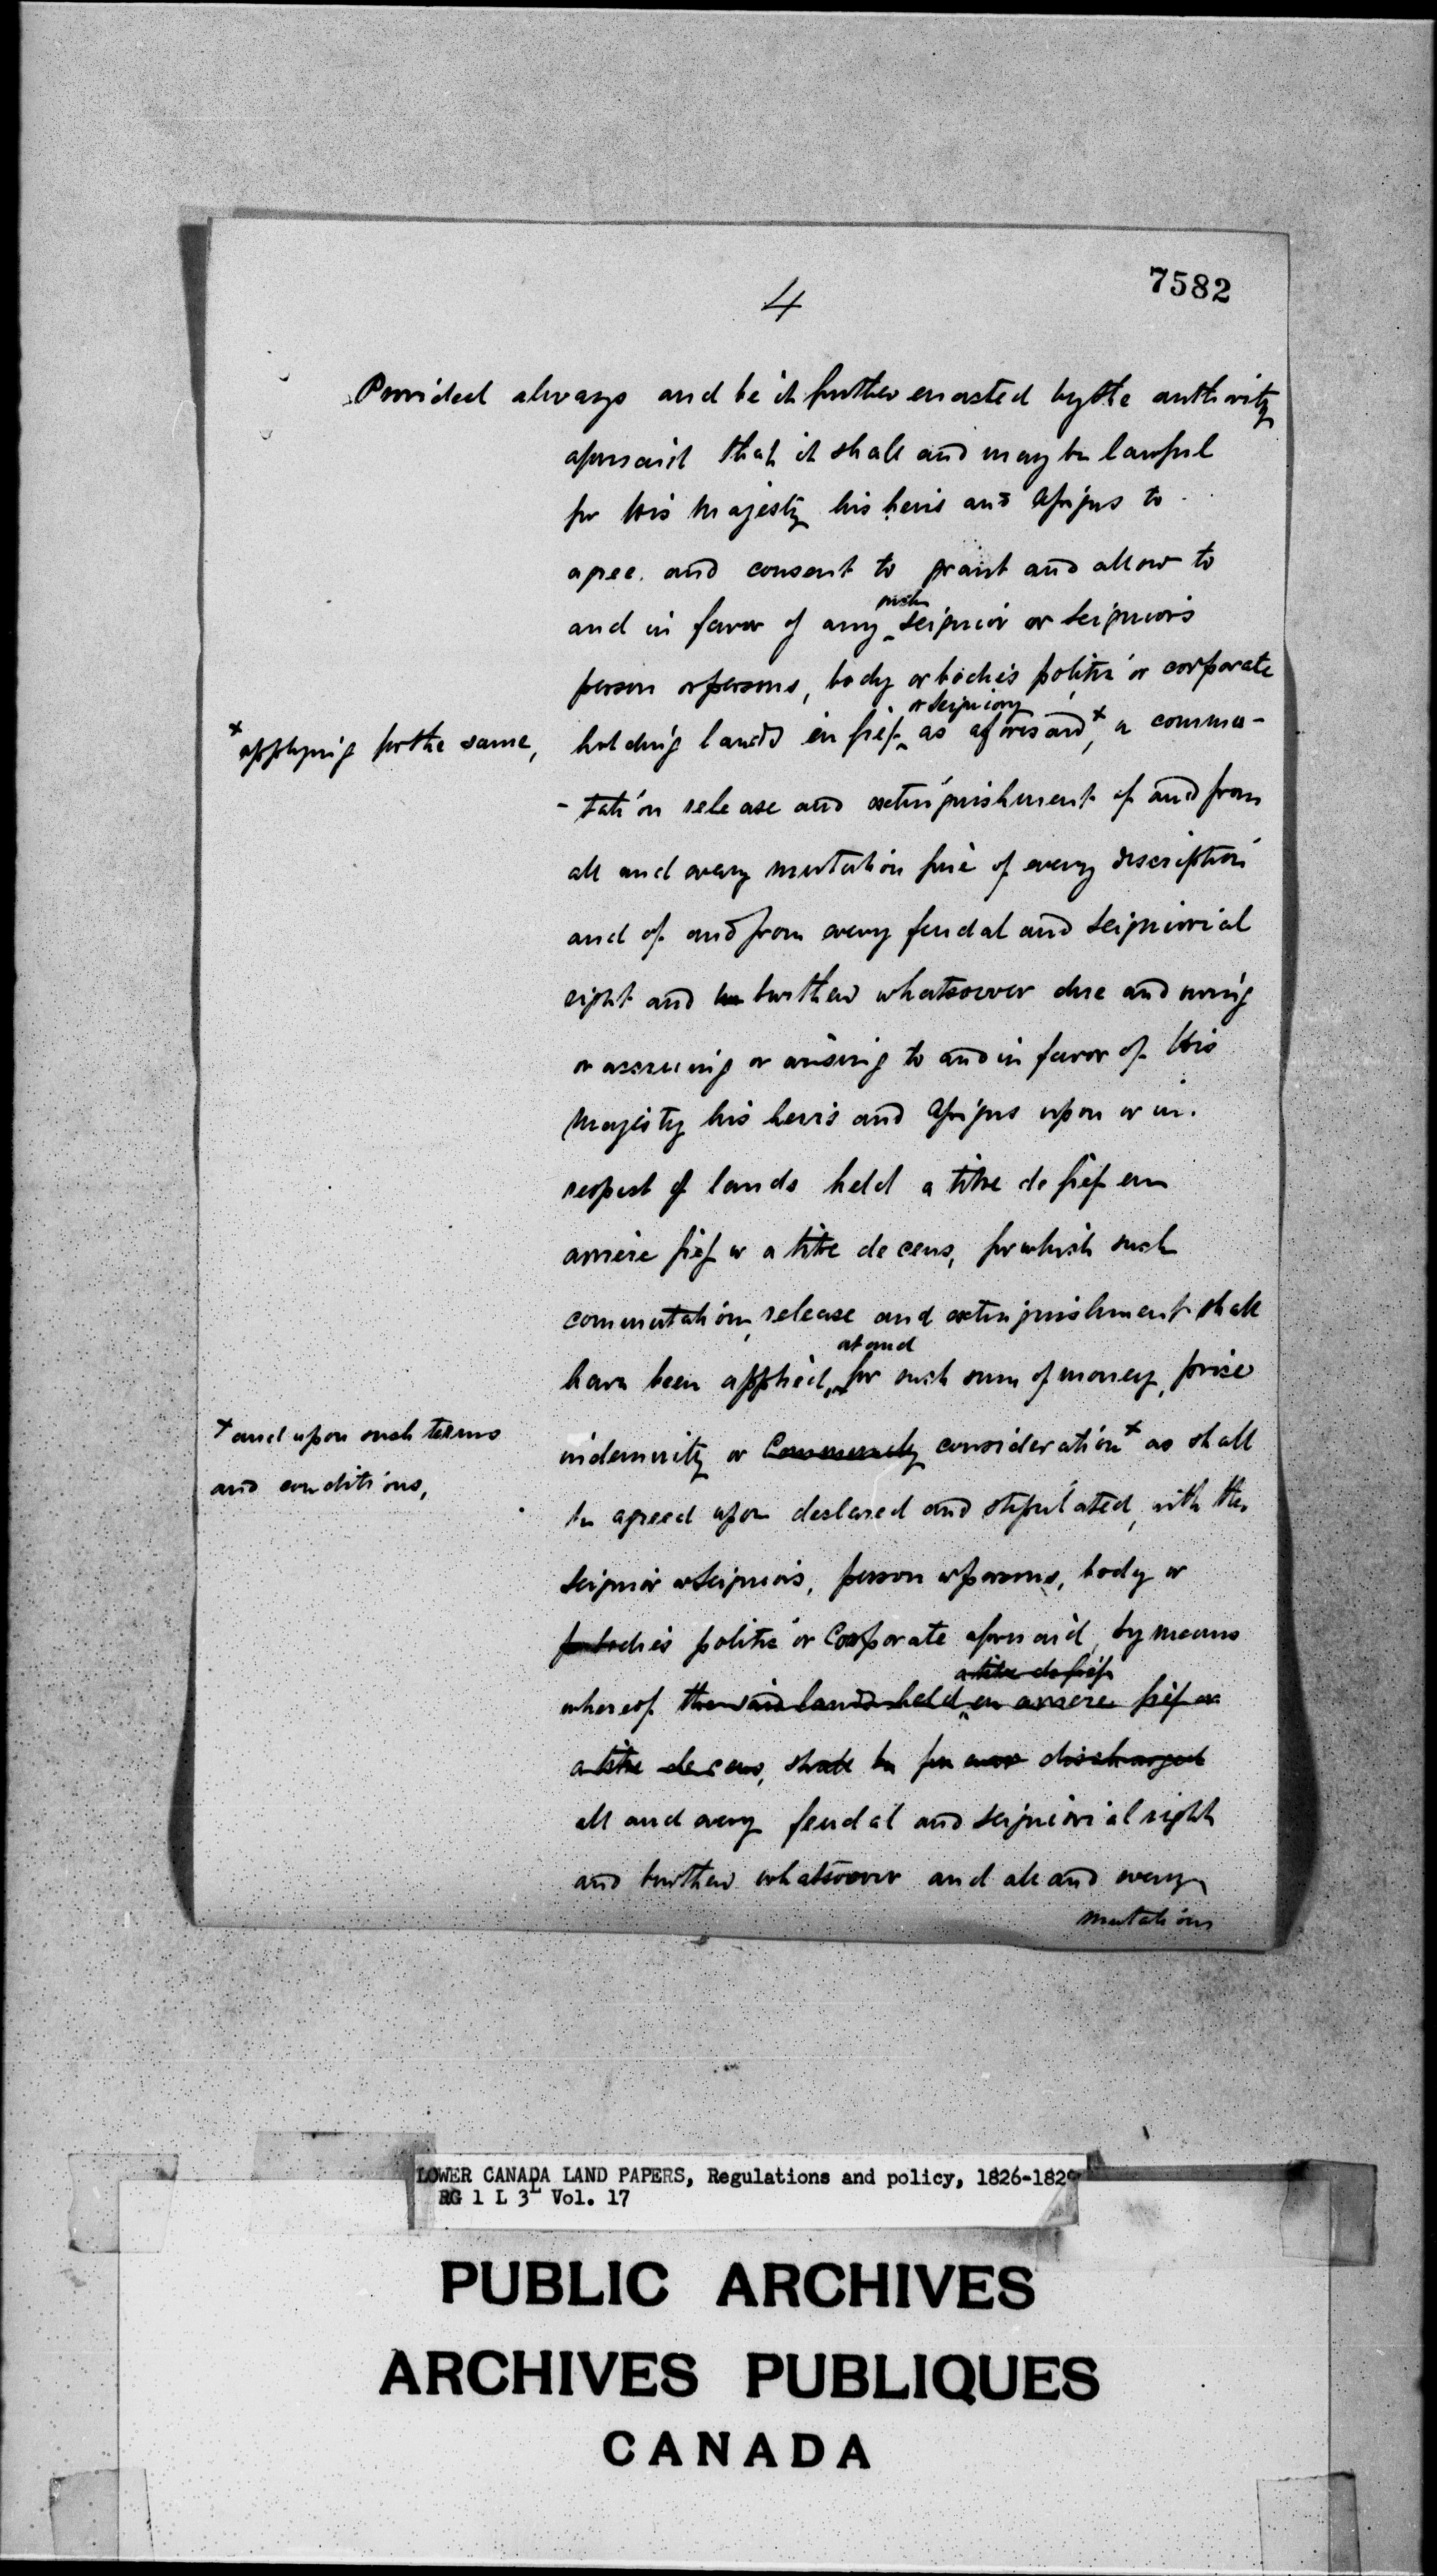 7582
4
Provided always and be it further enacted by the authority
aforesaid that it shall and may be lawful
for His Majesty his heirs and Assigns to
agree and consent to grant and allow to
such
and in favor of any Seignior or Seigniors
person or persons, body or bodies politic or corporate
or Seigniory
x applying for the same,
holding lands in fief as aforesaid x, a commu-
-tation release and extinguishment of and from
all and every mutation fine of every description
and of and from every feudal and Seigniorial
right and burthen whatsoever due and owing
or accruing or arising to and in favor of His
Majesty his heirs and Assigns upon or in
respect of lands held a titre de fief en
arriere fief or a titre de cens, for which such
commutation, release and extinguishment shall
at and
have been applied, for such sum of money, price
x and upon such terms
and conditions,
indemnity or consideration x as shall
be agreed upon declared and stipulated, with the
Seignior or Seigniors, person or persons, body or
bodies politic or Corporate aforesaid, by means
a titre de fief
whereof the said lands held en arriere fief or
a titre de cens, shall be for ever discharged
all and every feudal and seigniorial right
and burthen whatsoever and all and every
mutation
LOWER CANADA LAND PAPERS, Regulations and policy, 1826-1829
RG 1 L 3L Vol. 17
PUBLIC ARCHIVES
ARCHIVES PUBLIQUES
CANADA